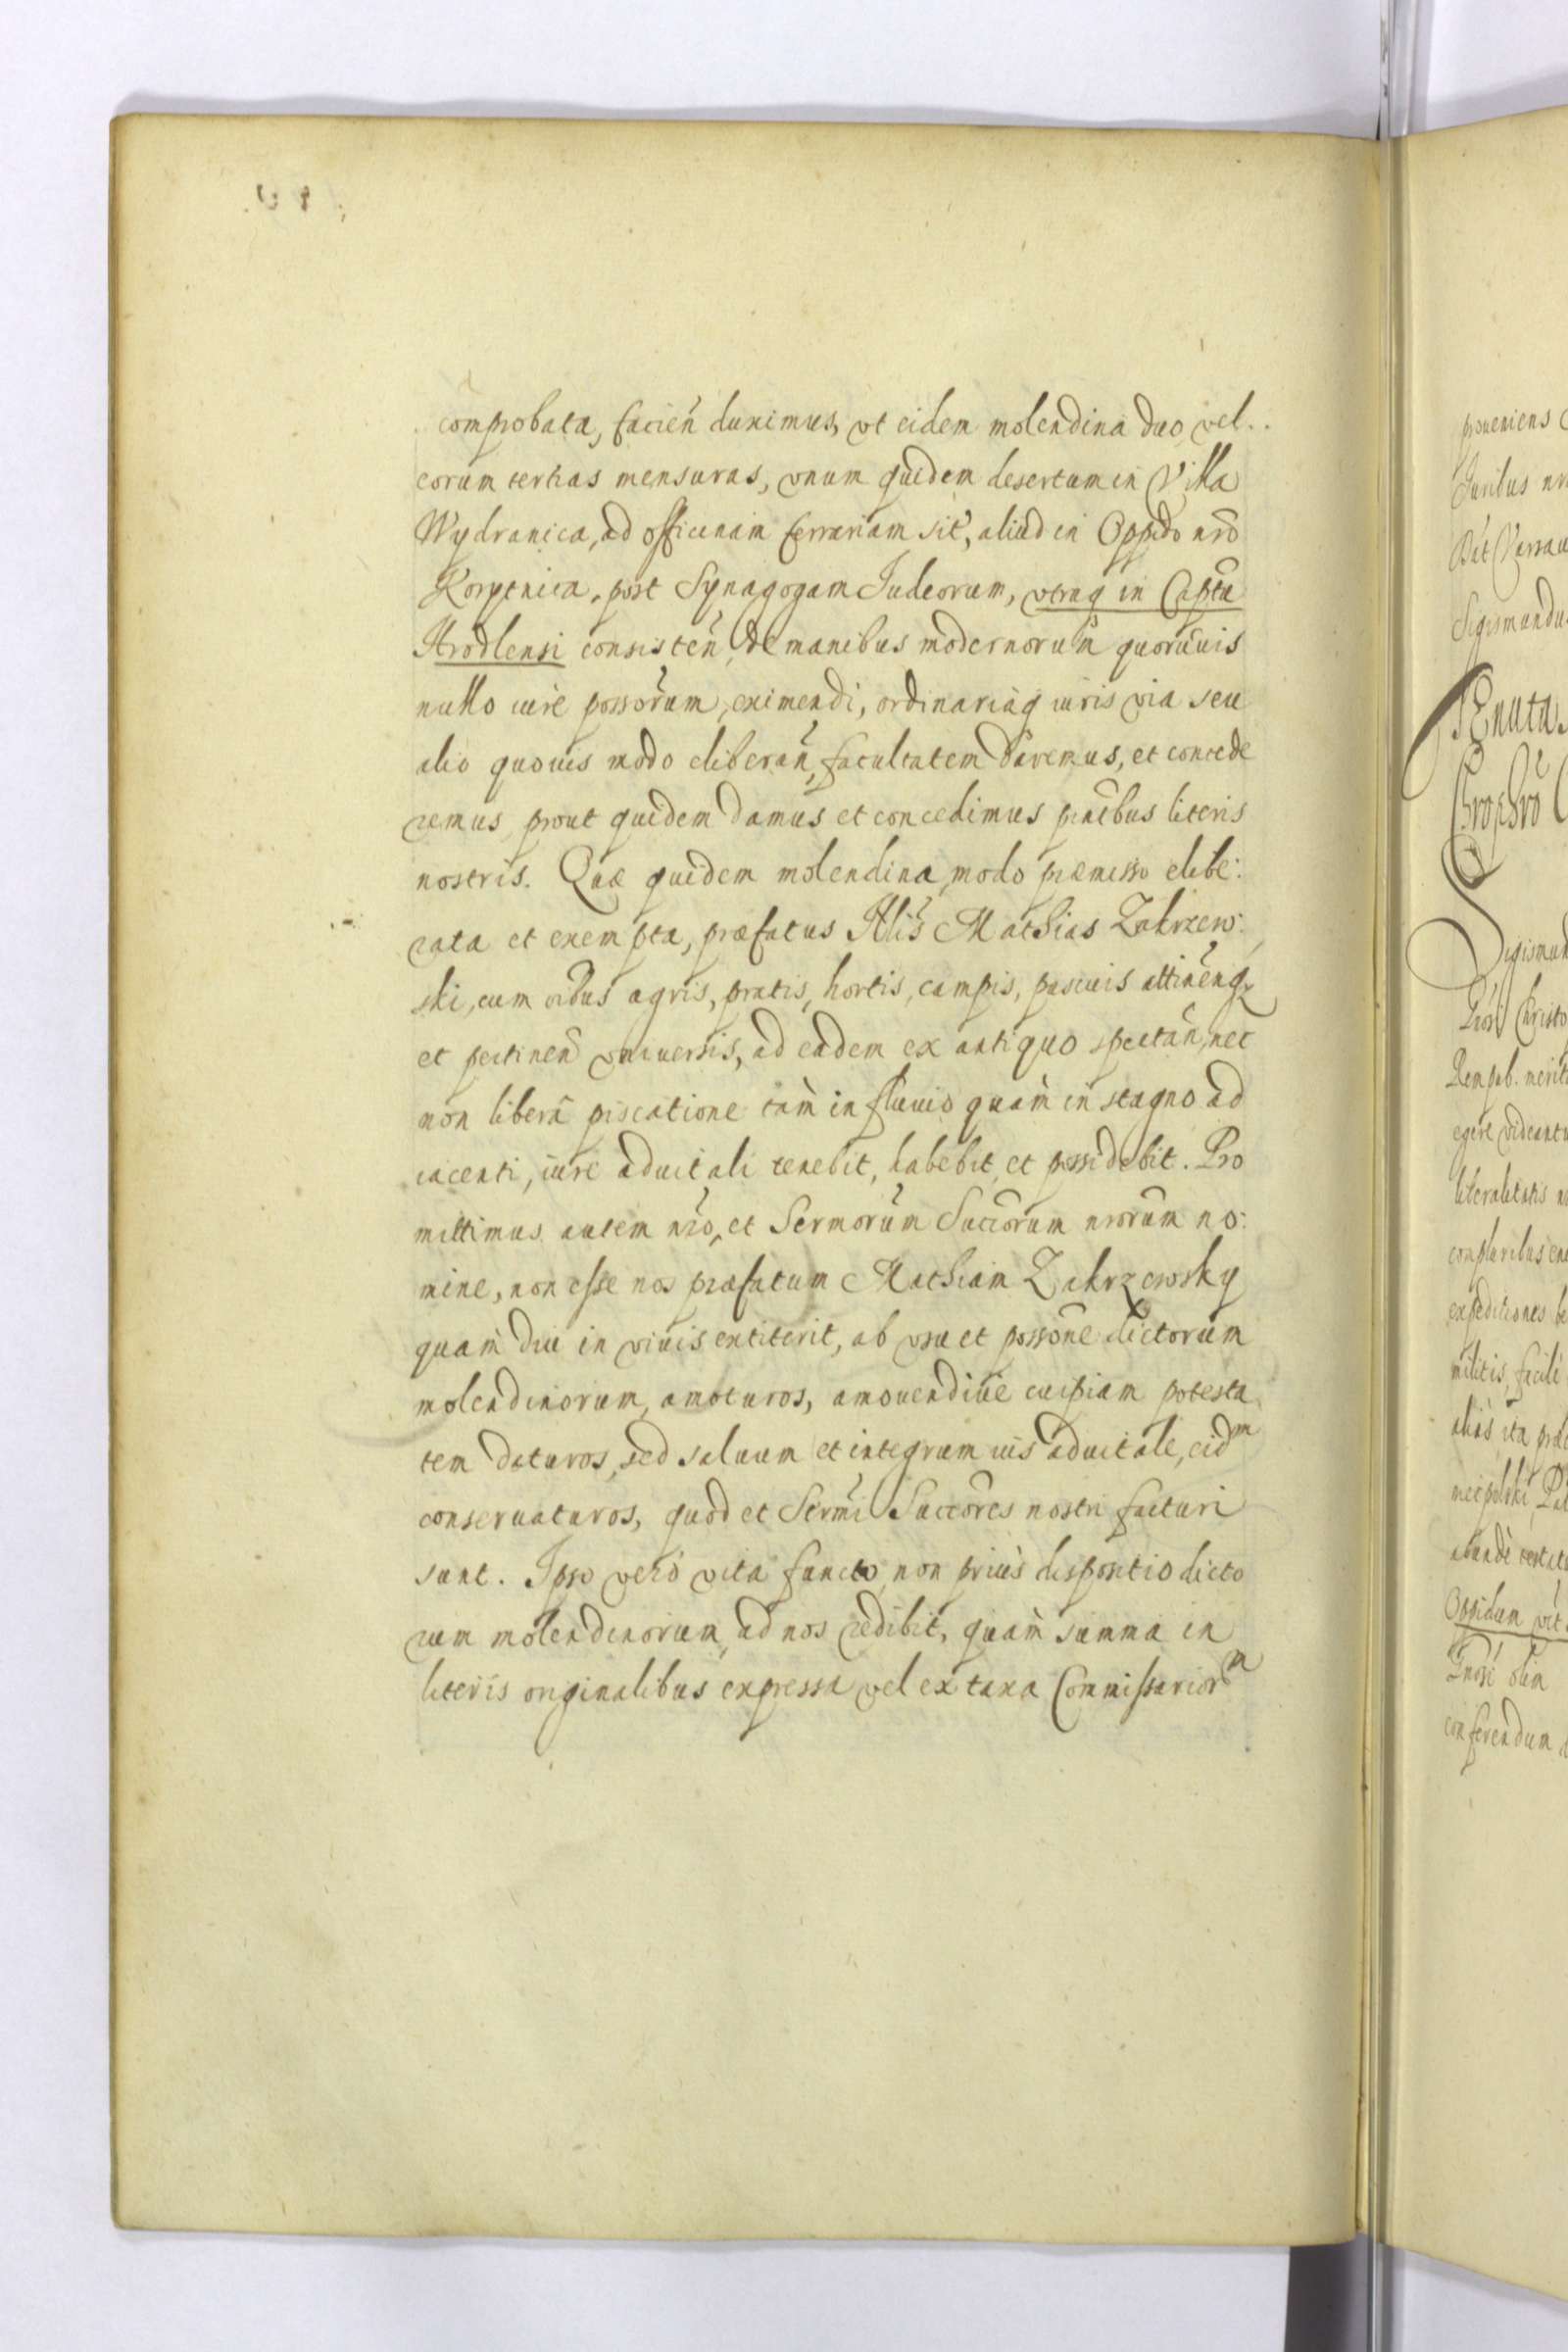 comprobata, facien̄ duximus, vt eidem molendina duo, vel
eorum tertias mensuras, vnum quidem desertum in Villa
Wydranica, ad officinam ferrariam sit̄, aliud in Oppido nr̄o
Korytnica, post Synagogam Iudeorum, vtraq in Captū
Hrodlensi consisten̄, de manibus modernorum quorūuis
nullo iure possor̄um, eximendi, ordinariaq iuris via seu
alio quouis modo eliberan̄, facultatem daremus, et concede
remus, prout quidem damus et concedimus pn̄tibus literis
nostris. Quæ quidem molendina, modo præmisso elibe:
rata et exempta, præfatus Nlis Mathias Zakrzew:
ski, cum oībus agris, pratis, hortis, campis, pascuis attinēn̄q
et pertinen̄ vniuersis, ad eadem ex antiquo spectan̄, nec
non libera piscatione tam̀ in fluuio quam̀ in stagno ad
iacenti, iure aduitali tenebit, habebit, et possidebit. Pro
mittimus autem nr̄o, et Sermorūm Succor̄um nror̄um no:
mine, non esse nos præfatum Mathiam Zakrzewsky
quam̀ diu in viuis extiterit, ab vsu et possōne dictorum
molendinorum, amoturos, amouendiue cuipiam potesta
tem daturos, sed saluum et integrum ius aduitale, eidm
conseruaturos, quod et Sermī Succōres nostri facturi
sunt. Ipso verò vita functo, non priùs dispositio dicto
rum molendinorum, ad nos redibit, quam̀ summa in
literis originalibus expressa vel ex taxa Commissariorm
poueniens
Juribus nr
Dat Varsau
Sigismundu
Sigismun
Christo
egere videantu
literalitatis
expeditiones be
militis, facilè
aliàs ita præ
Oppidum vit
olim
conferendum